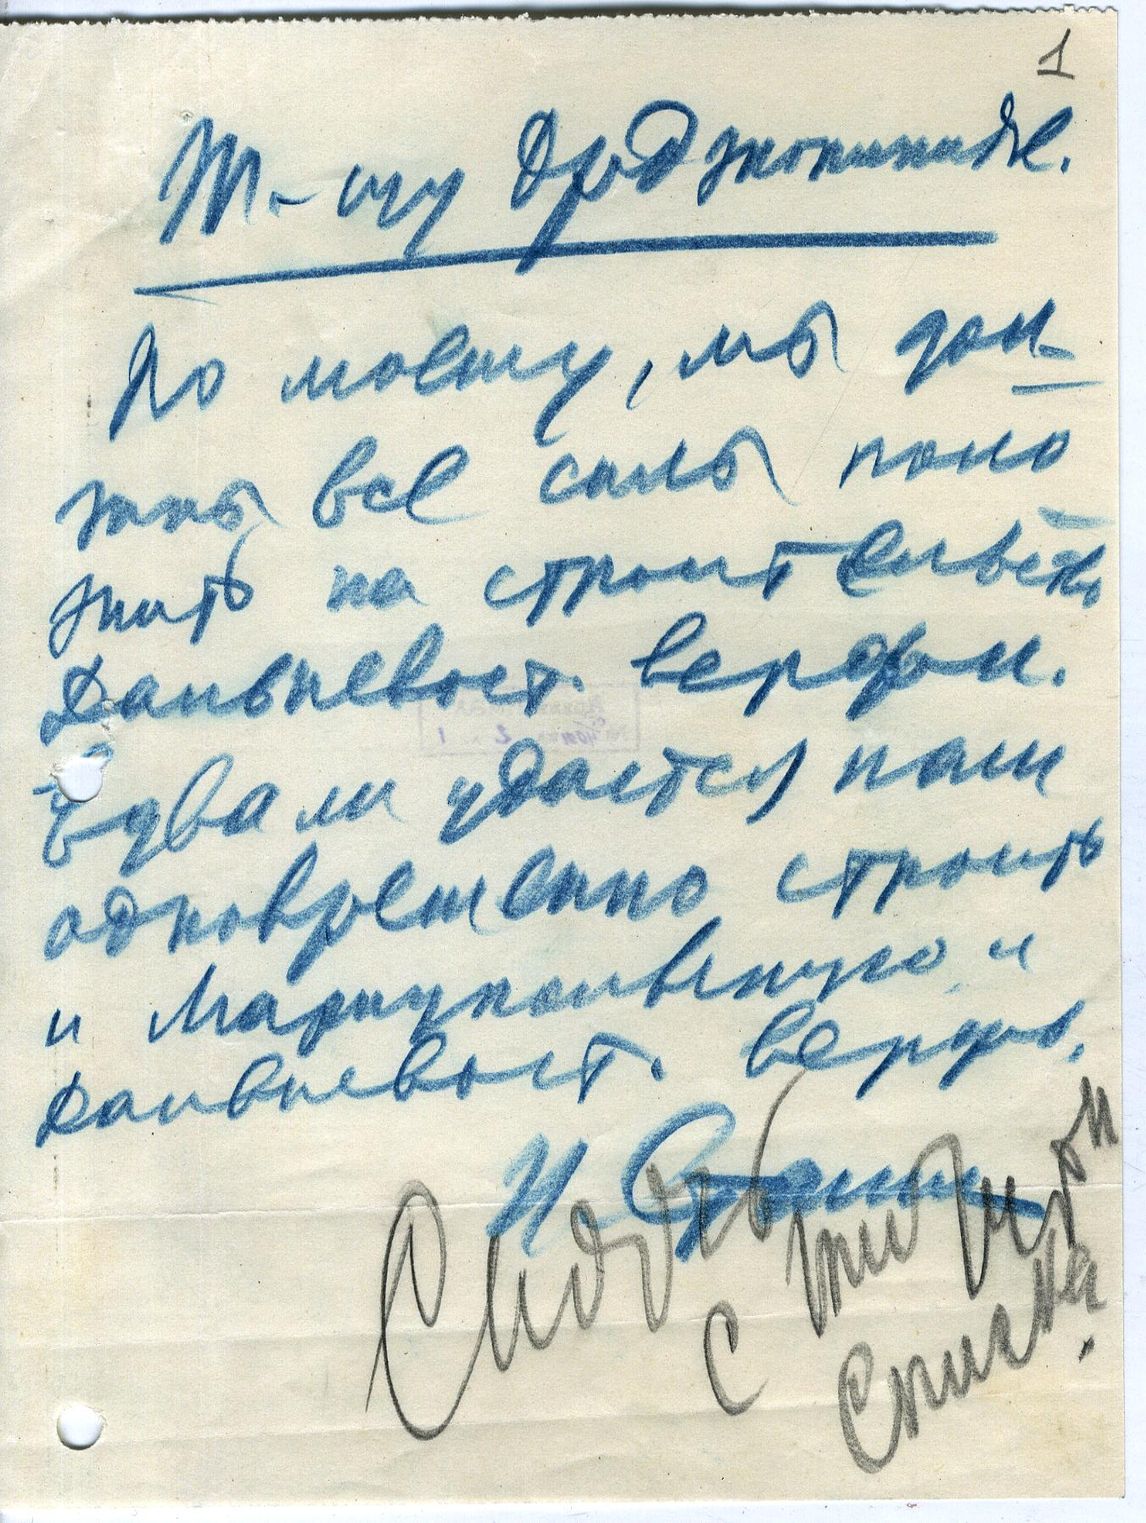 1
Т-щу Орджоникидзе.
По моему, мы дол-
жны все силы поло
жить на строительство
Дальневост. верфи.
Едва ли удастся нам
одновременно строить
и Мариупольскую и
Дальневост. верфь.
И. Сталин
с